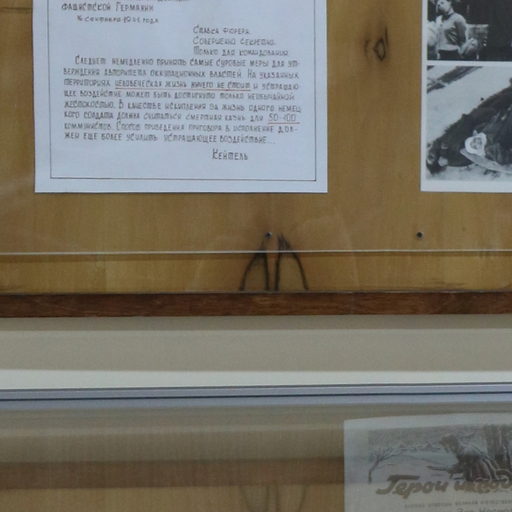 фашистской Германии
16 сентября 1941 года
Ставка фюрера
Совершенно секретно.
Только для командования.
Следует немедленно принять самые суровые меры для ут-
верждения авторитета оккупационных властей. На указанных
территориях человеческая жизнь ничего не стоит и устрашаю-
щее воздействие может быть достигнуто только необычайной
жестокостью. В качестве искупления за жизнь одного немец-
кого солдата должна считаться смертная казнь для 50-100
коммунистов. Способ приведения приговора в исполнение дол-
жен еще более усилить устрашающее воздействие...
Кейтель
Герои